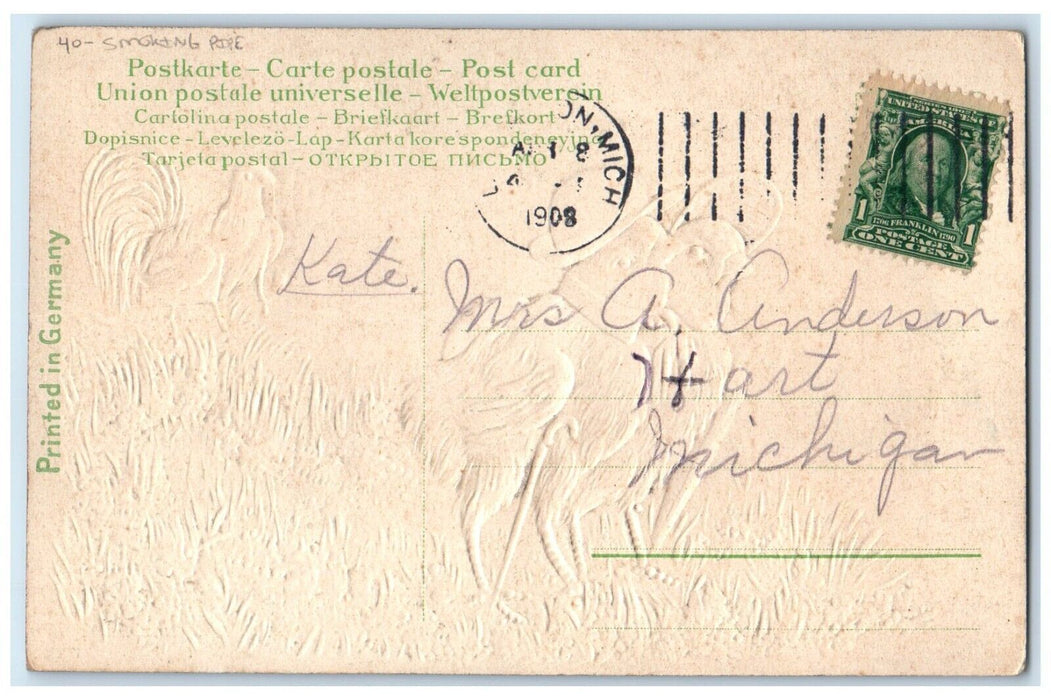 40- SMOKING PIPE
Postkarte – Carte postale – Post card
Union postale universelle – Weltpostverein
Cartolina postale – Briefkaart – Brefkort
Dopisnice – Levelezö-Lap – Karta korespondencyjna
Tarjeta postal – ОТКРЫТОЕ ПИСЬМО
ON, MICH
1908
SERIES 1902
UNITED STATES OF
AMERICA
1706 FRANKLIN 1790
1 POSTAGE 1
ONE CENT
Printed in Germany
Kate.
Mrs A. Anderson
Hart
Michigan